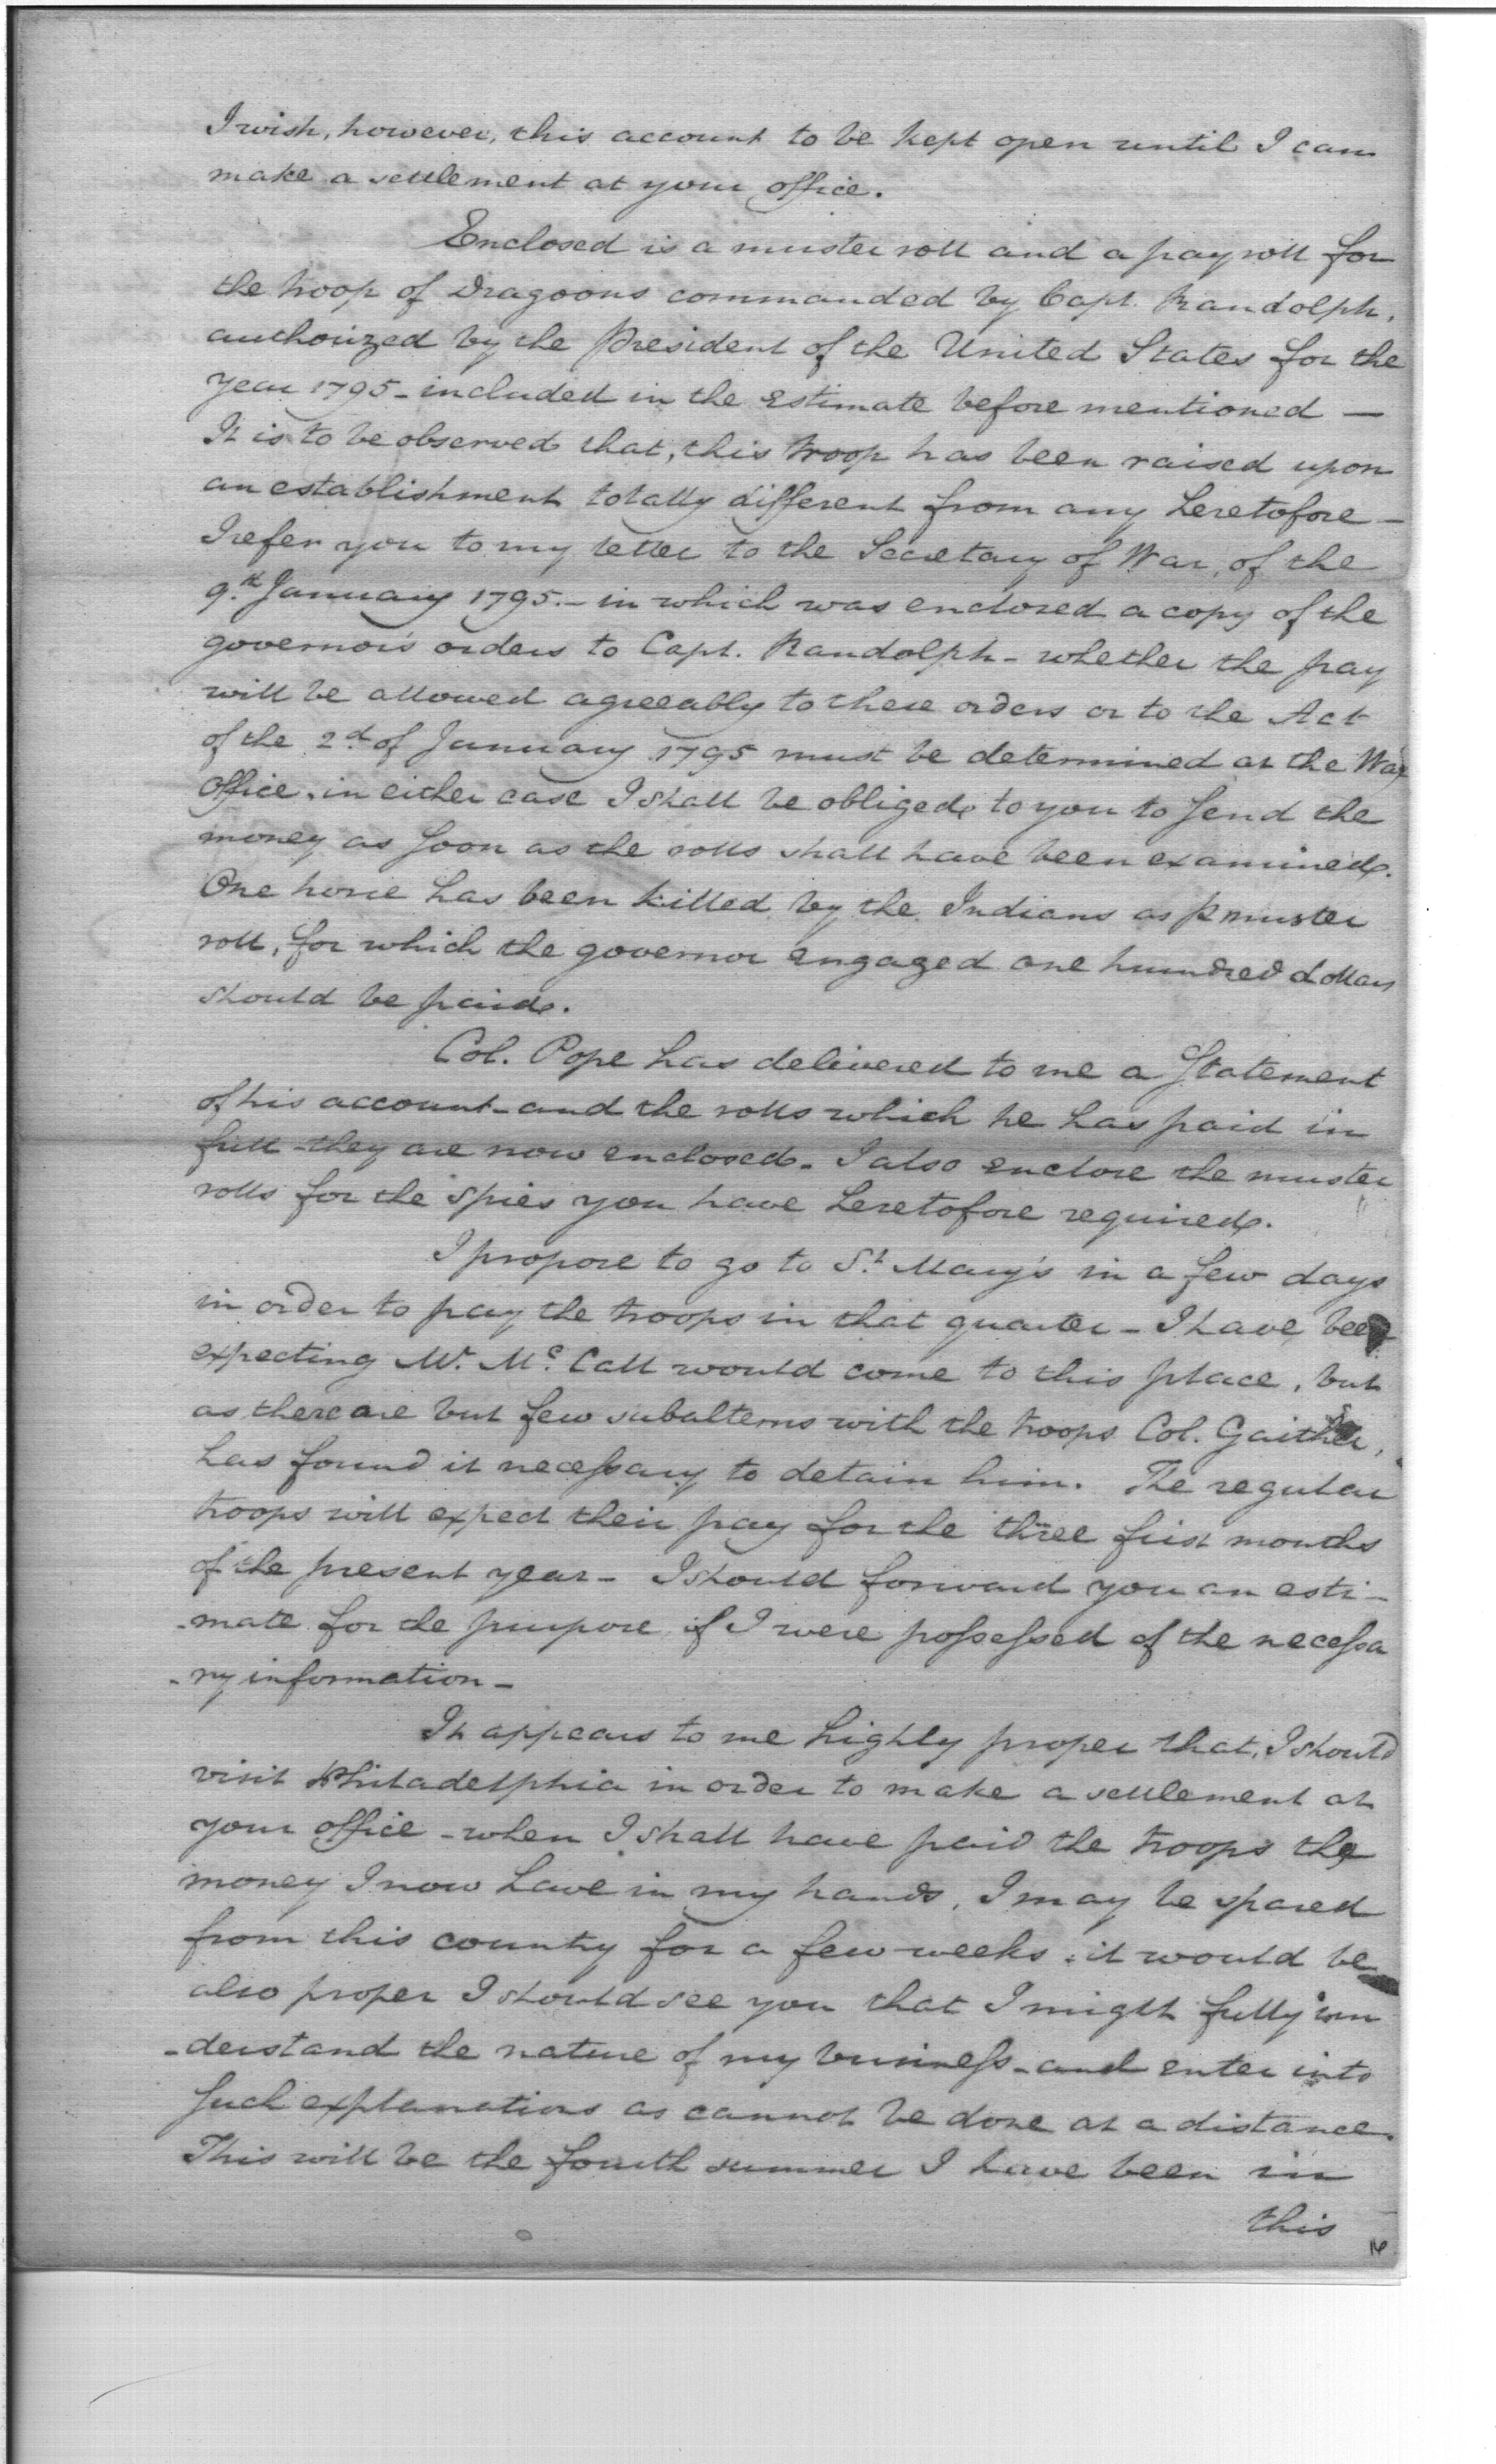 I wish, however, this account to be kept open until I can
make a settlement at your office.
Enclosed is a muster roll and a pay roll for
the troop of Dragoons commanded by Capt. Randolph,
authorized by the President of the United States for the
year 1795 - included in the estimate before mentioned —
It is to be observed that, this troop has been raised upon
an establishment totally different from any heretofore —
I refer you to my letter to the Secretary of War, of the
9.th January 1795. - in which was enclosed a copy of the
governor's orders to Capt. Randolph - whether the pay
will be allowed agreeably to these orders or to the Act
of the 2.d of January 1795 must be determined at the War
office, in either case I shall be obliged to you to send the
money as soon as the rolls shall have been examined.
One horse has been killed by the Indians as p muster
roll, for which the governor engaged one hundred dollars
should be paid.
Col. Pope has delivered to me a Statement
of his account - and the rolls which he has paid in
full - they are now enclosed. I also enclose the muster
rolls for the spies you have heretofore required.
I propose to go to St. Mary's in a few days
in order to pay the troops in that quarter - I have been
expecting Mr. Mc. Call would come to this place, but
as there are but few subalterns with the troops Col. Gaither,
has found it necessary to detain him. The regular
troops will expect their pay for the three first months
of the present year - I should forward you an esti-
-mate for the purpose if I were possessed of the necessa
-ry information -
It appears to me highly proper that, I should
visit Philadelphia in order to make a settlement at
your office - when I shall have paid the troops the
money I now have in my hands, I may be spared
from this country for a few weeks, it would be
also proper I should see you that I might fully un
-derstand the nature of my business - and enter into
such explanations as cannot be done at a distance.
This will be the fourth summer I have been in
this